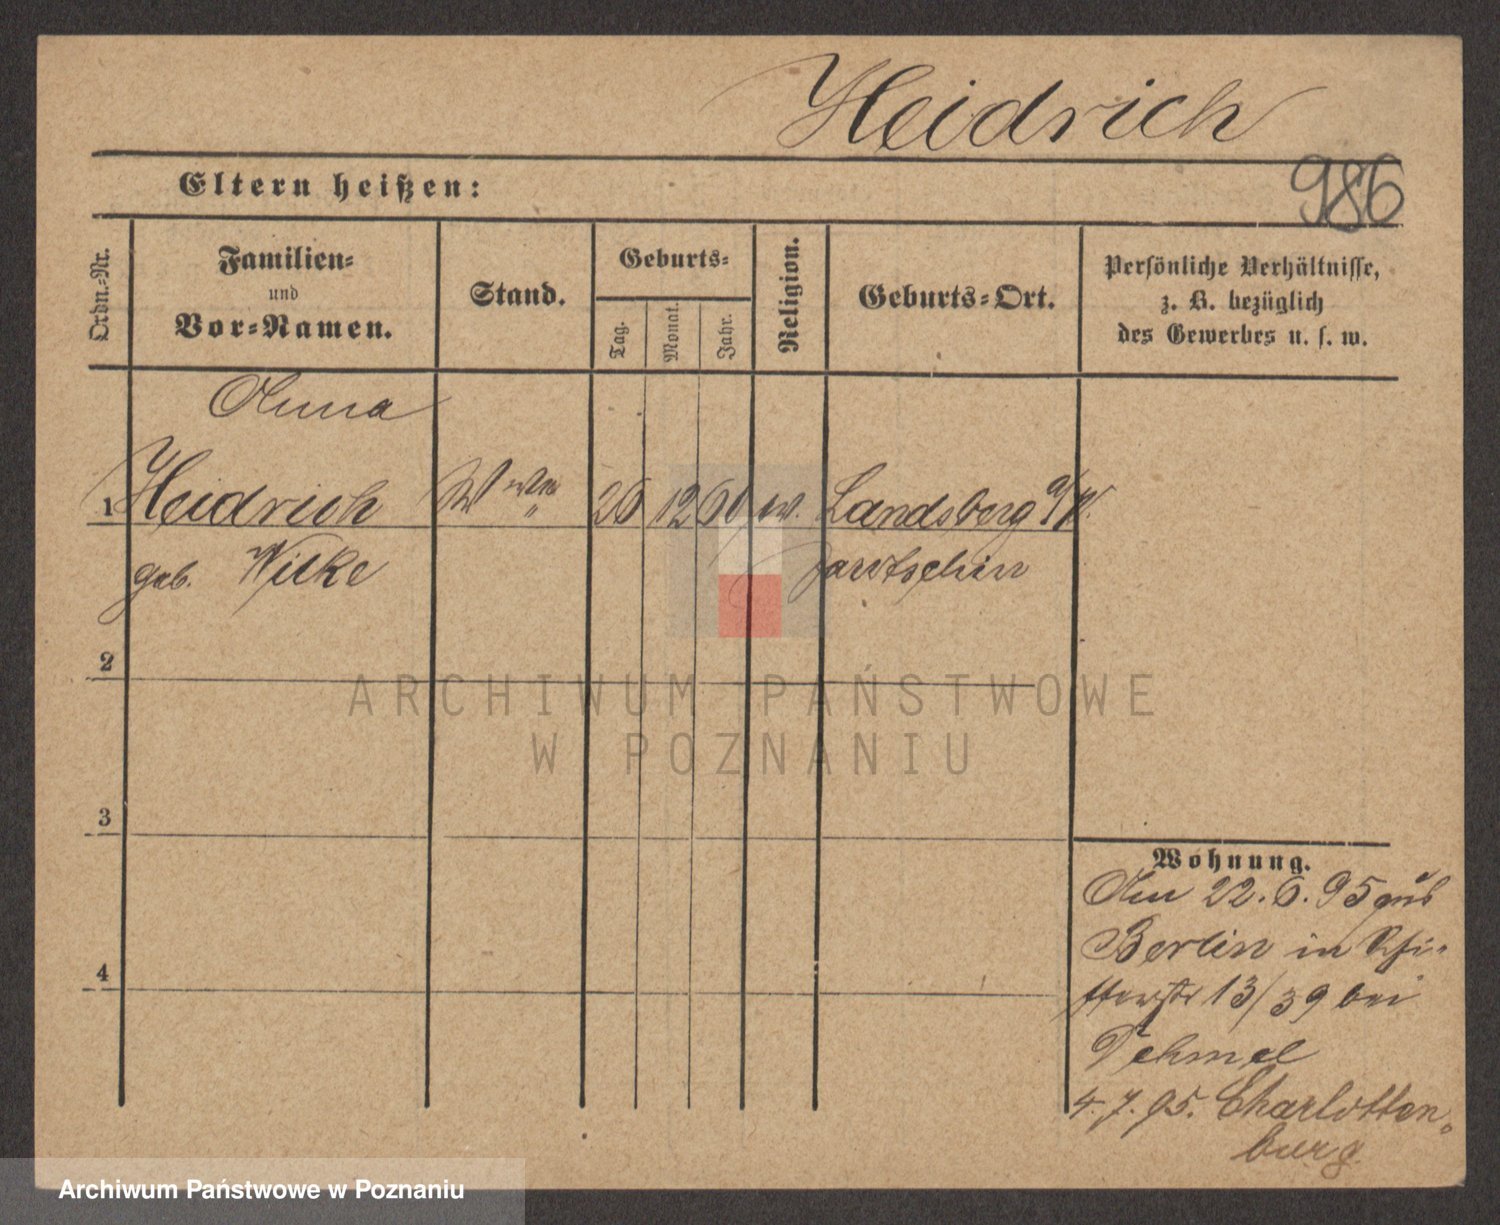 Heidrich
986
Eltern heißen:
Ordn.-Nr.
Familien-
und
Vor-Namen.
Stand.
Geburts-
Tag.
Monat.
Jahr.
Religion.
Geburts-Ort.
Persönliche Verhältnisse,
z. B. bezüglich
des Gewerbes u. s. w.
Anna
1 Heidrich 26 12 60 ev. Landsberg a/W.
geb. Wilke Jarotschin
2
3
4
Wohnung.
Am 22.6.95 aus
Berlin in
13/39 bei
Dehmel
4.7.95. Charlotten-
burg
ARCHIWUM PAŃSTWOWE
W POZNANIU
Archiwum Państwowe w Poznaniu